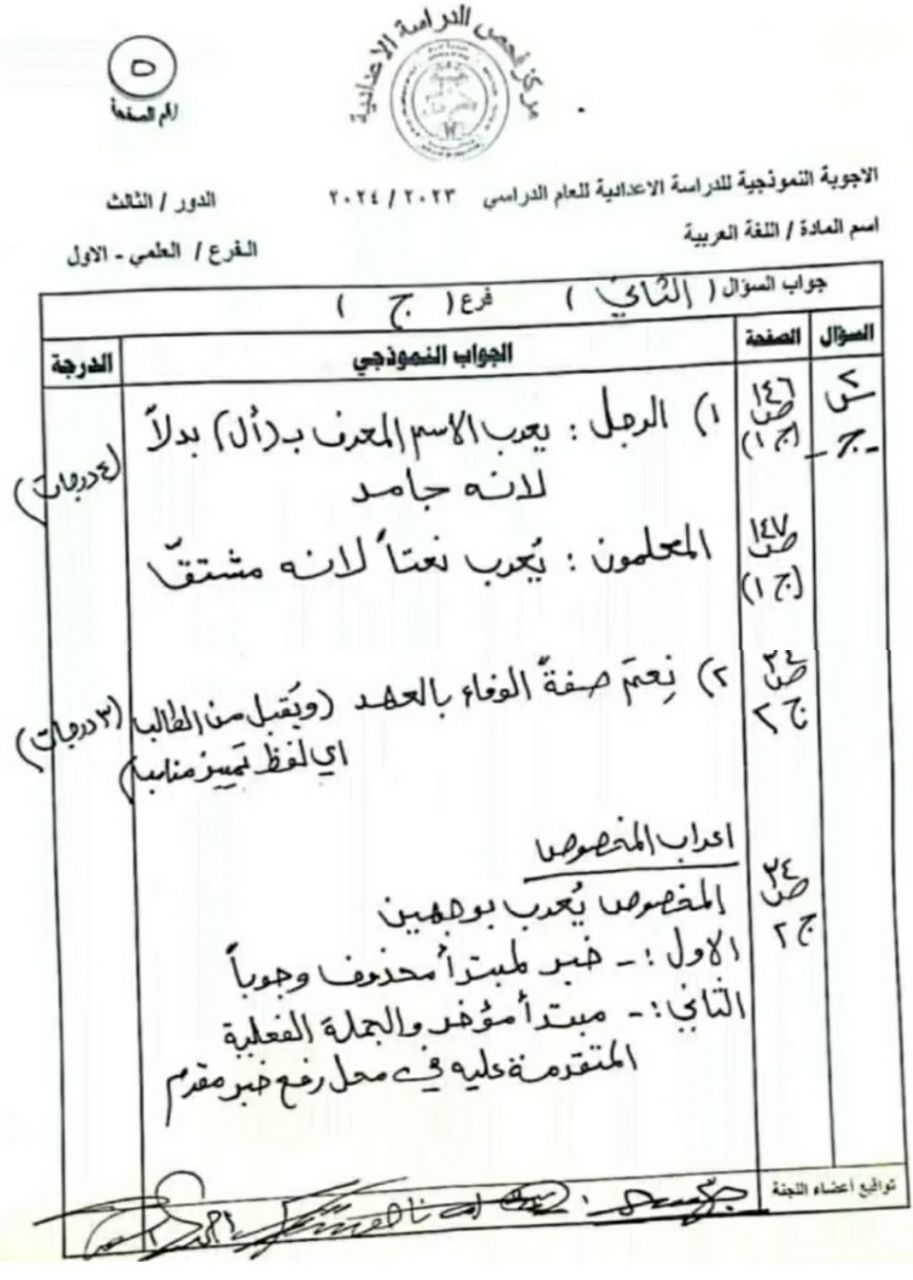 مركز فحص الدراسة الاعدادية
٥
رقم الصفحة
الاجوبة النموذجية للدراسة الاعدادية للعام الدراسي ٢٠٢٣ / ٢٠٢٤
الدور / الثالث
اسم المادة / اللغة العربية
الفرع / العلمي - الاول
جواب السؤال ( الثاني ) فرع ( ج )
السؤال الصفحة الجواب النموذجي الدرجة
س٢ ص١٤٦ ١) الرجل : يعرب الاسم المعرف بـ (أل) بدلاً
- ج - (ج ١) لانه جامد (٤ درجات)
ص١٤٧ المعلمون : يُعرب نعتاً لانه مشتقّ
(ج ١)
ص٣٤ ٢) نِعمَ صفةً الوفاء بالعهد (ويُقبل من الطالب (٣ درجات)
ج ٢ اي لفظ تمييز مناسب)
اعراب المخصوص
ص٣٤ المخصوص يُعرب بوجهين
ج ٢ الاول :- خبر لمبتدأ محذوف وجوباً
الثاني :- مبتدأ مؤخر والجملة الفعلية
المتقدمة عليه في محل رفع خبر مقدم
تواقيع اعضاء اللجنة